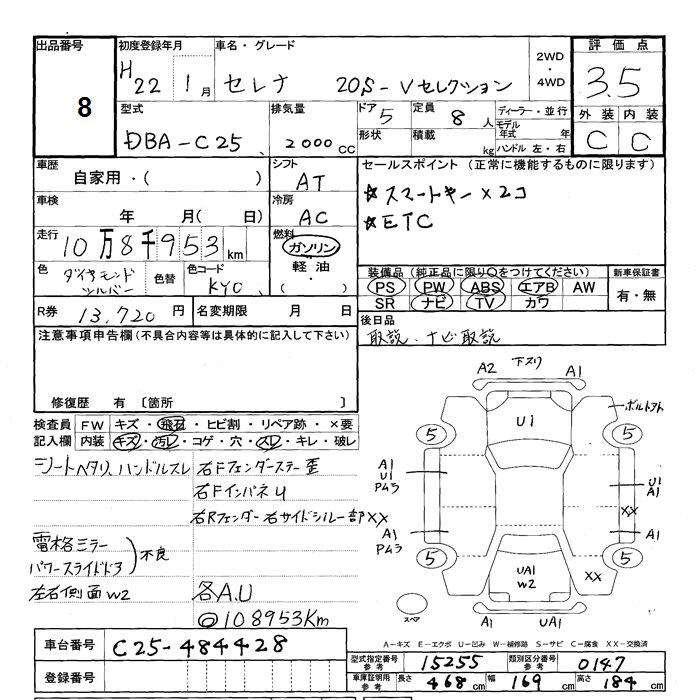 出品番号 初度登録年月 車名・グレード 2WD・4WD 評価点
8 H22 1月 セレナ 20S-Vセレクション 3.5
型式 排気量 ドア 5 定員 8人 ディーラー・並行 外装 内装
DBA-C25 2000cc 形状 積載 kg モデル年式 年 C C
ハンドル 左・右
車歴 シフト セールスポイント (正常に機能するものに限ります)
自家用・( ) AT ☆スマートキー×2コ
車検 冷房 ☆ETC
年 月( 日) AC
走行 燃料
10万8千953km ガソリン
軽油・( )
色 ダイヤモンドシルバー 色替 色コード KY0
装備品 (純正品に限り○をつけてください) 新車保証書
PS PW ABS エアB AW 有・無
SR ナビ TV カワ
R券 13,720円 名変期限 月 日 後日品
取説・ナビ取説
注意事項申告欄(不具合内容等は具体的に記入して下さい)
修復歴 有 〔箇所 〕
検査員記入欄 FW キズ・飛石・ヒビ割・リペア跡・×要
内装 キズ・汚レ・コゲ・穴・スレ・キレ・破レ
シートヘタリ、ハンドルスレ 右Fフェンダーステー歪
右FインパネU
右Rフェンダー右サイドシルー部XX
電格ミラー
パワースライドドア 不良
左右側面W2 各A.U
◎108953Km
A2 下スリ A1
U1 ボルトアト
5 5
A1 U1
U1 A1
Pムラ XX
A1 A1
Pムラ
5 5
UA1 W2 XX
スペア A1 UA1
A-キズ E-エクボ U-凹み W-補修跡 S-サビ C-腐食 XX-交換済
車台番号 C25-484428
型式指定番号 参考 15255 類別区分番号 参考 0147
登録番号 車庫証明用 参考 長さ 468cm 幅 169cm 高さ 184cm